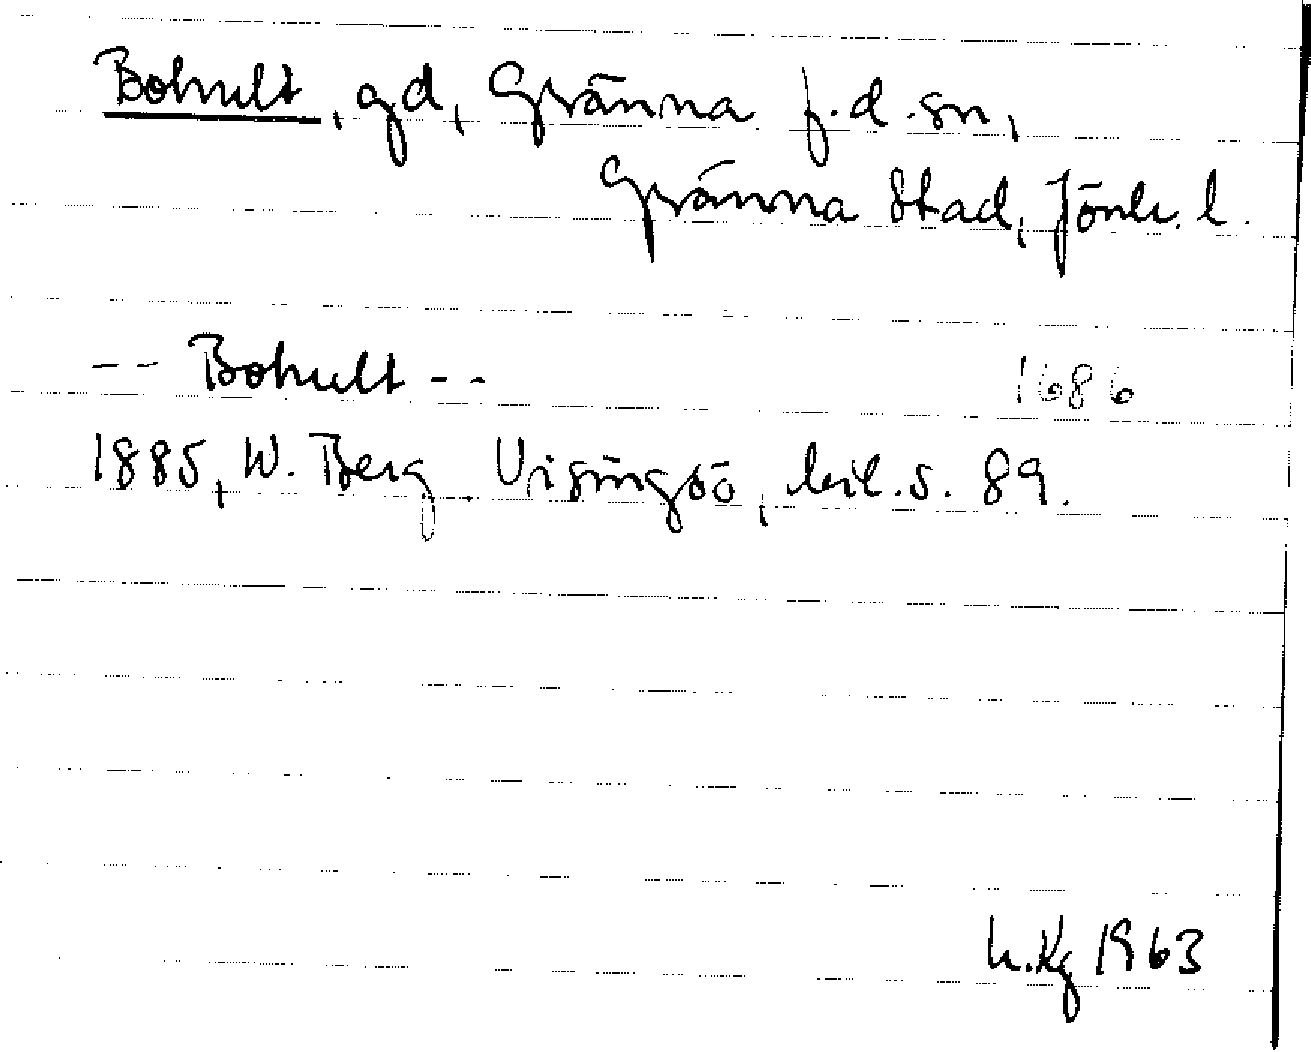 Bohult, gd, Gränna f.d. sn,
Gränna stad, Jönk. l.
-- Bohult -- 1686
1885, W. Berg Visingsö, bil. s. 89.
h.Kg 1963